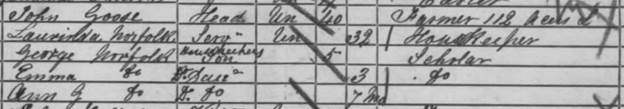 John Goose Head Un 40 Farmer 112 Acres
Laurinda Norfolk Serv Un 32 House Keeper
George Norfolk Housekeepers Son 5 Scholar
Emma Do D. 3 Do
Ann G Do D. Do 7 Mo